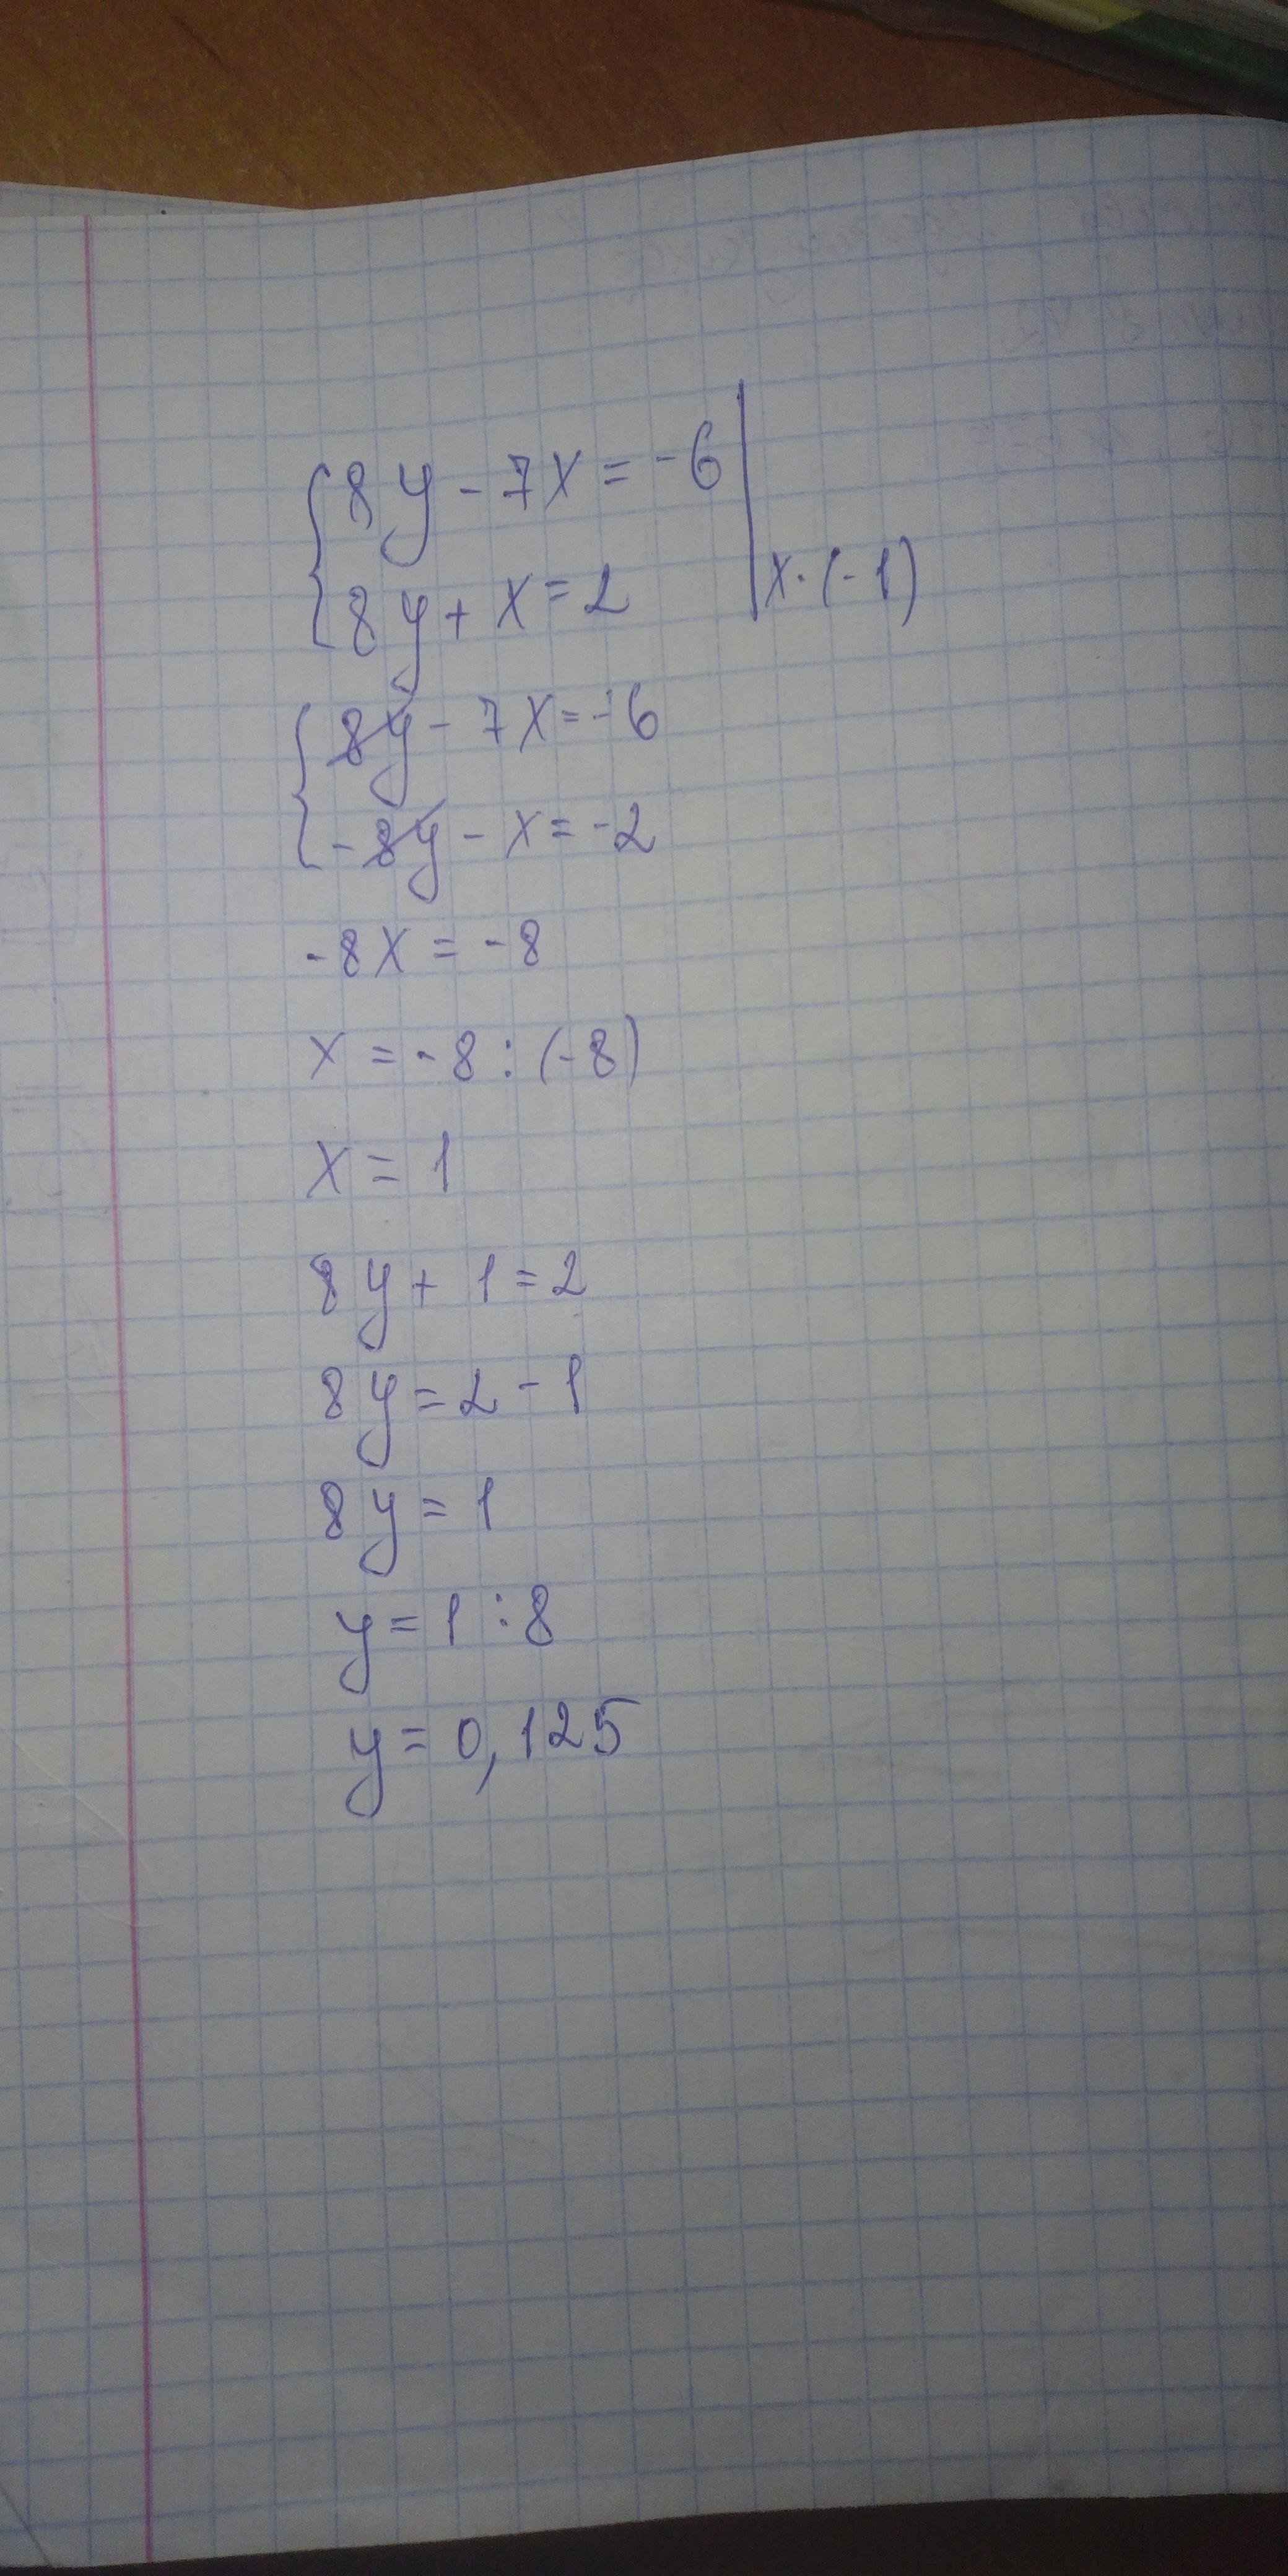 8y - 7x = -6
8y + x = 2 | x · (-1)
8y - 7x = -6
-8y - x = -2
-8x = -8
x = -8 : (-8)
x = 1
8y + 1 = 2
8y = 2 - 1
8y = 1
y = 1 : 8
y = 0,125